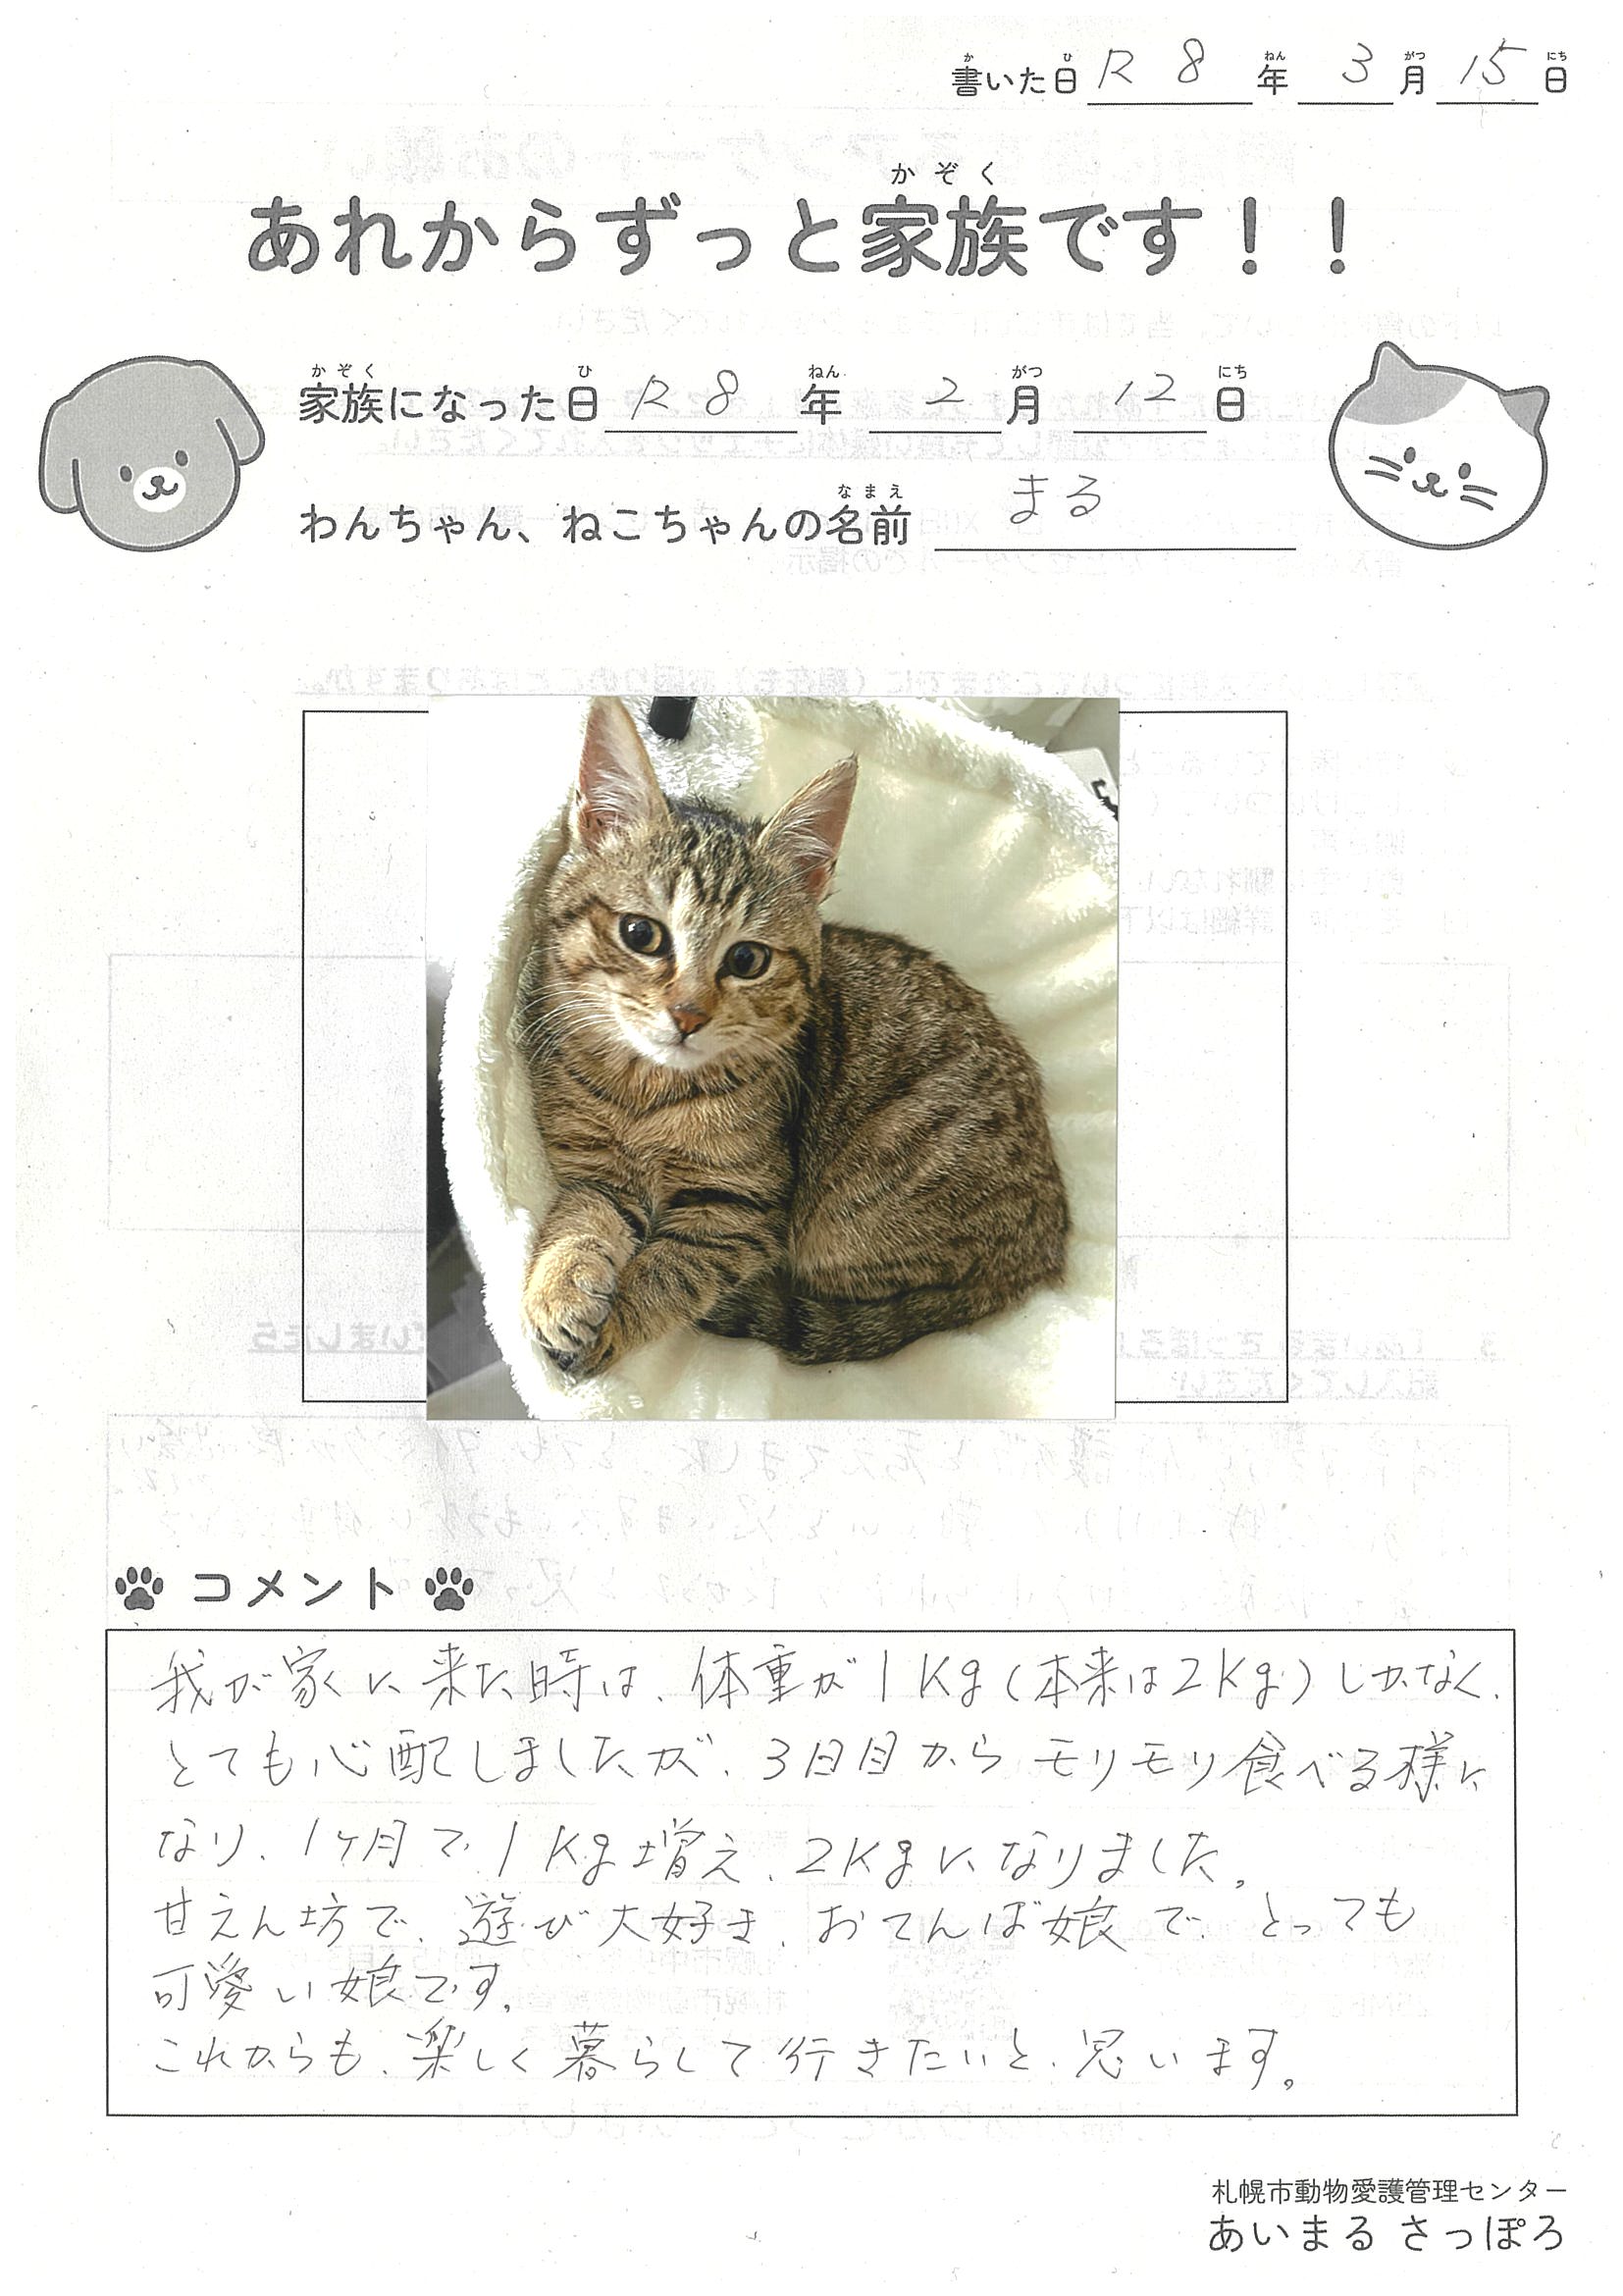 書いた日 R 8 年 3 月 15 日
あれからずっと家族です！！
家族になった日 R 8 年 2 月 12 日
わんちゃん、ねこちゃんの名前 まる
コメント
我が家に来た時は、体重が1Kg(本来は2Kg)しかなく、
とても心配しましたが、3日目からモリモリ食べる様に
なり、1ヶ月で1Kg増え、2Kgになりました。
甘えん坊で、遊び大好き、おてんば娘で、とっても
可愛い娘です。
これからも、楽しく暮らして行きたいと、思います。
札幌市動物愛護管理センター
あいまる さっぽろ